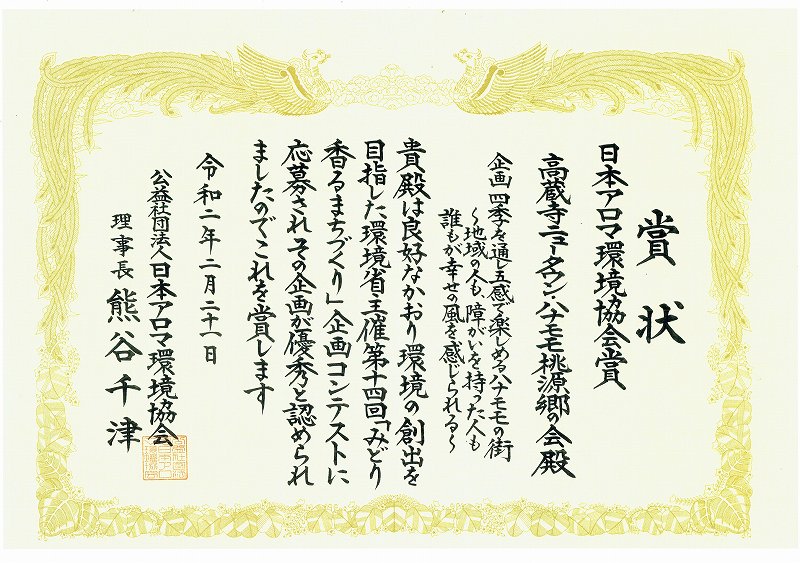 賞状
日本アロマ環境協会賞
高蔵寺ニュータウン・ハナモモ桃源郷の会殿
企画 四季を通し五感で楽しめるハナモモの街
〜地域の人も、障がいを持った人も
誰もが幸せの風を感じられる〜
貴殿は良好なかおり環境の創出を
目指した環境省主催第十四回「みどり
香るまちづくり」企画コンテストに
応募され その企画が優秀と認められ
ましたのでこれを賞します
令和二年二月二十一日
公益社団法人 日本アロマ環境協会
理事長 熊谷千津